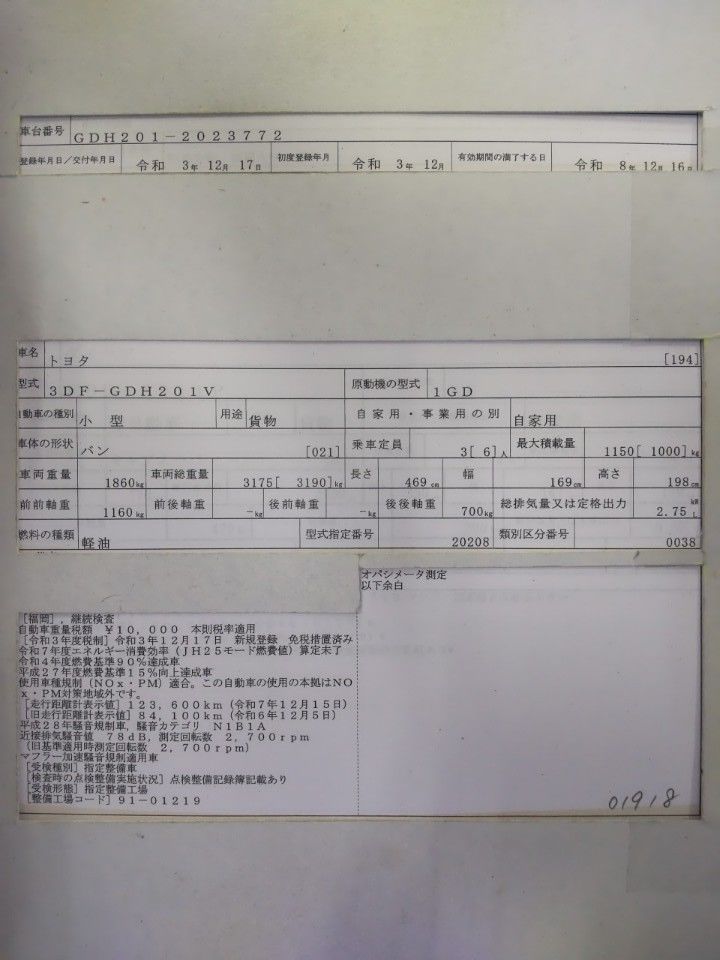 車台番号 GDH201-2023772
登録年月日/交付年月日 令和 3年 12月 17日 初度登録年月 令和 3年 12月 有効期間の満了する日 令和 8年 12月 16日
車名 トヨタ [194]
型式 3DF-GDH201V 原動機の型式 1GD
自動車の種別 小 型 用途 貨物 自家用・事業用の別 自家用
車体の形状 バン [021] 乗車定員 3[ 6]人 最大積載量 1150[ 1000]kg
車両重量 1860kg 車両総重量 3175[ 3190]kg 長さ 469cm 幅 169cm 高さ 198cm
前前軸重 1160kg 前後軸重 -kg 後前軸重 -kg 後後軸重 700kg 総排気量又は定格出力 2.75 kW L
燃料の種類 軽油 型式指定番号 20208 類別区分番号 0038
オパシメータ測定
以下余白
[福岡],継続検査
自動車重量税額 ¥10,000 本則税率適用
[令和3年度税制]令和3年12月17日 新規登録 免税措置済み
令和7年度エネルギー消費効率(JH25モード燃費値)算定未了
令和4年度燃費基準90%達成車
平成27年度燃費基準15%向上達成車
使用車種規制(NOx・PM)適合。この自動車の使用の本拠はNO
x・PM対策地域外です。
[走行距離計表示値]123,600km(令和7年12月15日)
[旧走行距離計表示値]84,100km(令和6年12月5日)
平成28年騒音規制車,騒音カテゴリ N1B1A
近接排気騒音値 78dB,測定回転数 2,700rpm
(旧基準適用時測定回転数 2,700rpm)
マフラー加速騒音規制適用車
[受検種別]指定整備車
[検査時の点検整備実施状況]点検整備記録簿記載あり
[受検形態]指定整備工場
[整備工場コード]91-01219
01918